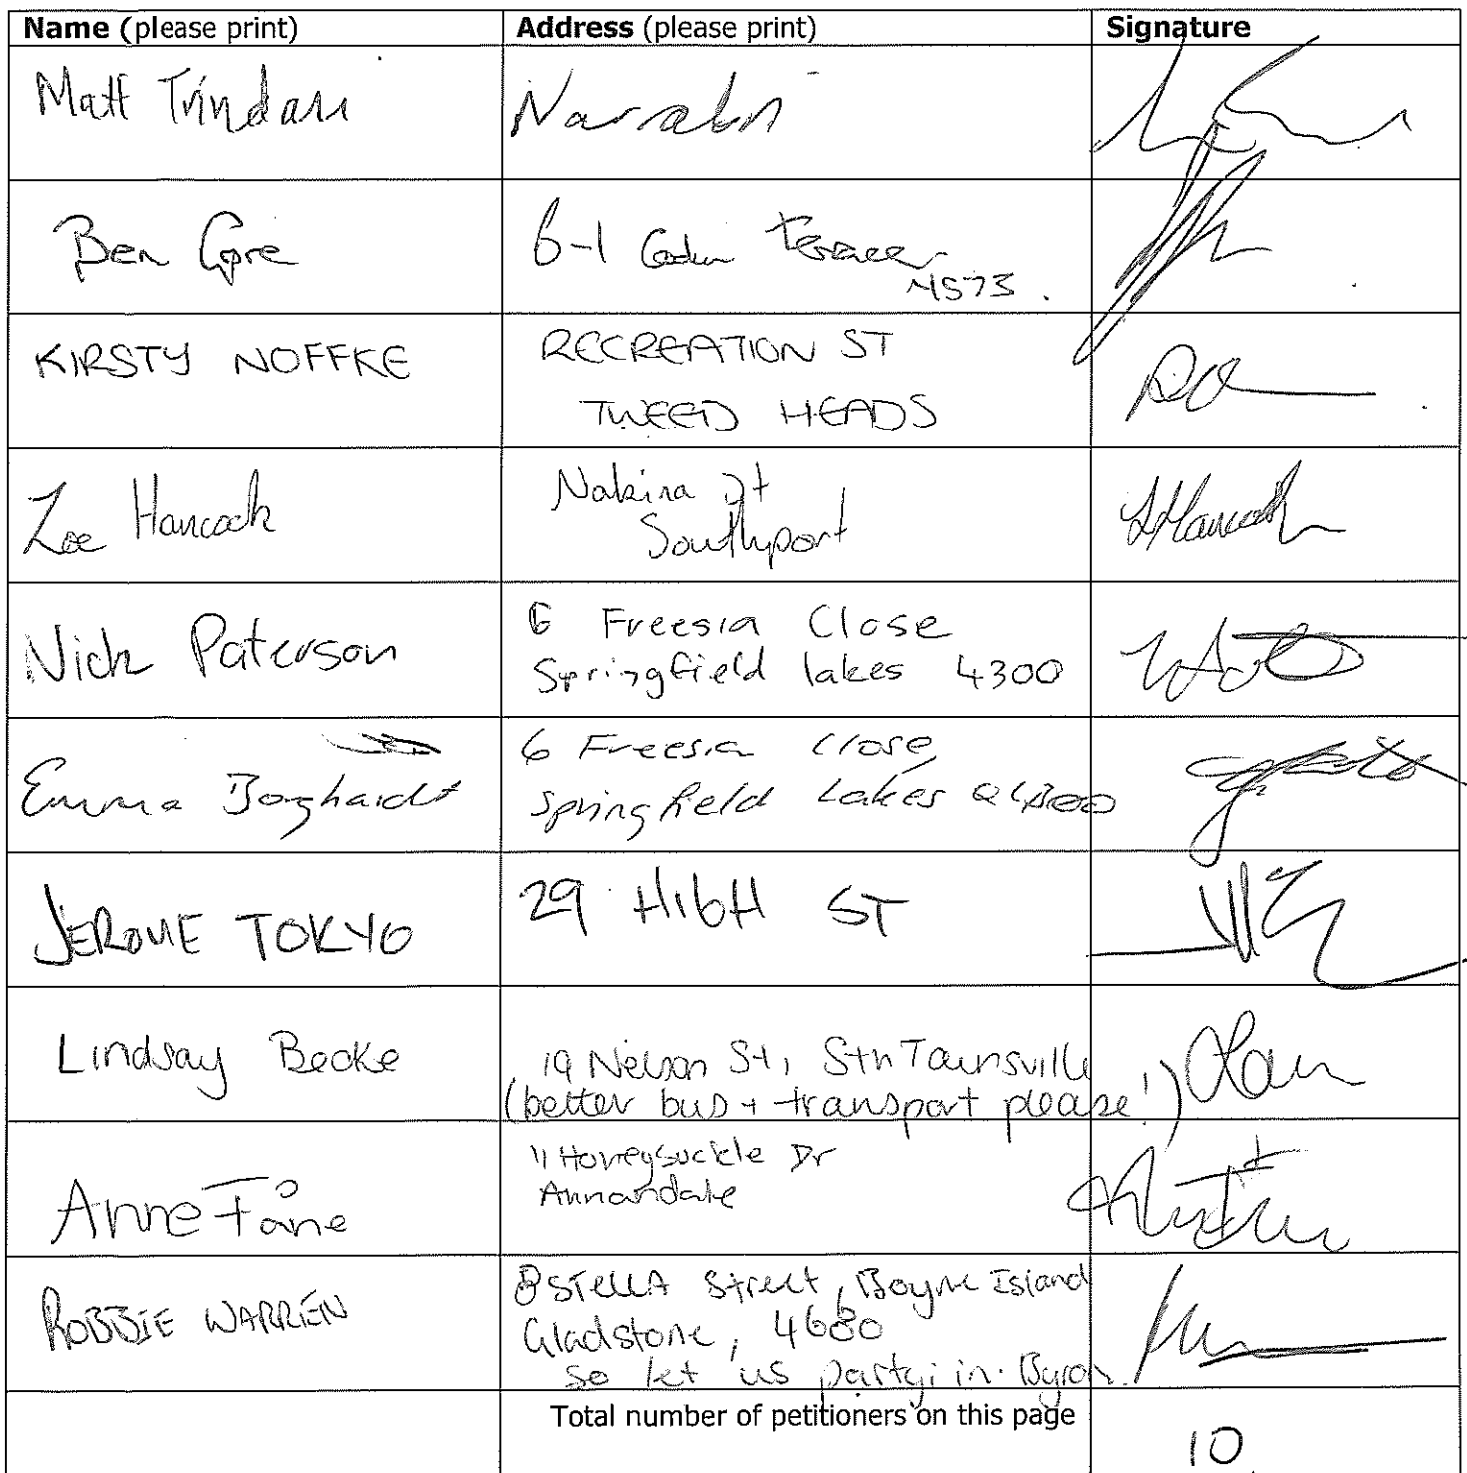 Name (please print) Address (please print) Signature
Matt Narrabri
Ben Gore 6-1 Terrace
4573.
KIRSTY NOFFKE RECREATION ST
TWEED HEADS
Zoe Hancock Nakina St
Southport
Nick Paterson 6 Freesia Close
Springfield lakes 4300
Emma 6 Freesia Close,
Springfield Lakes Q 4300
JEROME TOKYO 29 HIGH ST
Lindsay Becke 19 Nelson St, Sth Townsville
(better bus + transport please!)
Anne Fane 11 Honeysuckle Dr
Annandale
ROBBIE WARREN 8 STELLA Street, Boyne Island
Gladstone, 4680
so let us party in Byron.
Total number of petitioners on this page
10